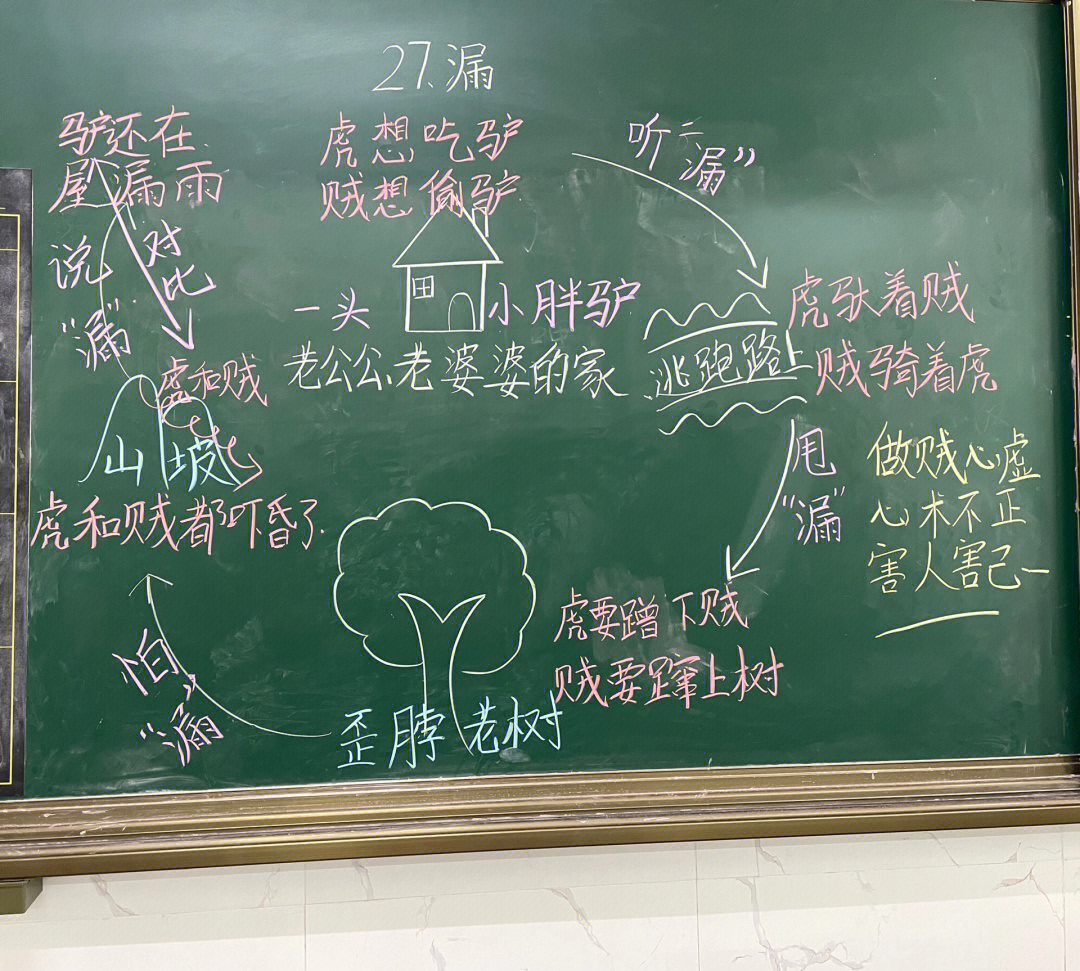 27.漏
驴还在
屋漏雨
虎想吃驴
贼想偷驴
听“漏”
一头
小胖驴
老公公、老婆婆的家
逃跑路上
虎驮着贼
贼骑着虎
甩
“漏”
做贼心虚
心术不正
害人害己
虎要蹭下贼
贼要蹿上树
歪脖老树
怕
“漏”
山坡
虎和贼都吓昏了
虎和贼
说
“漏”
对比